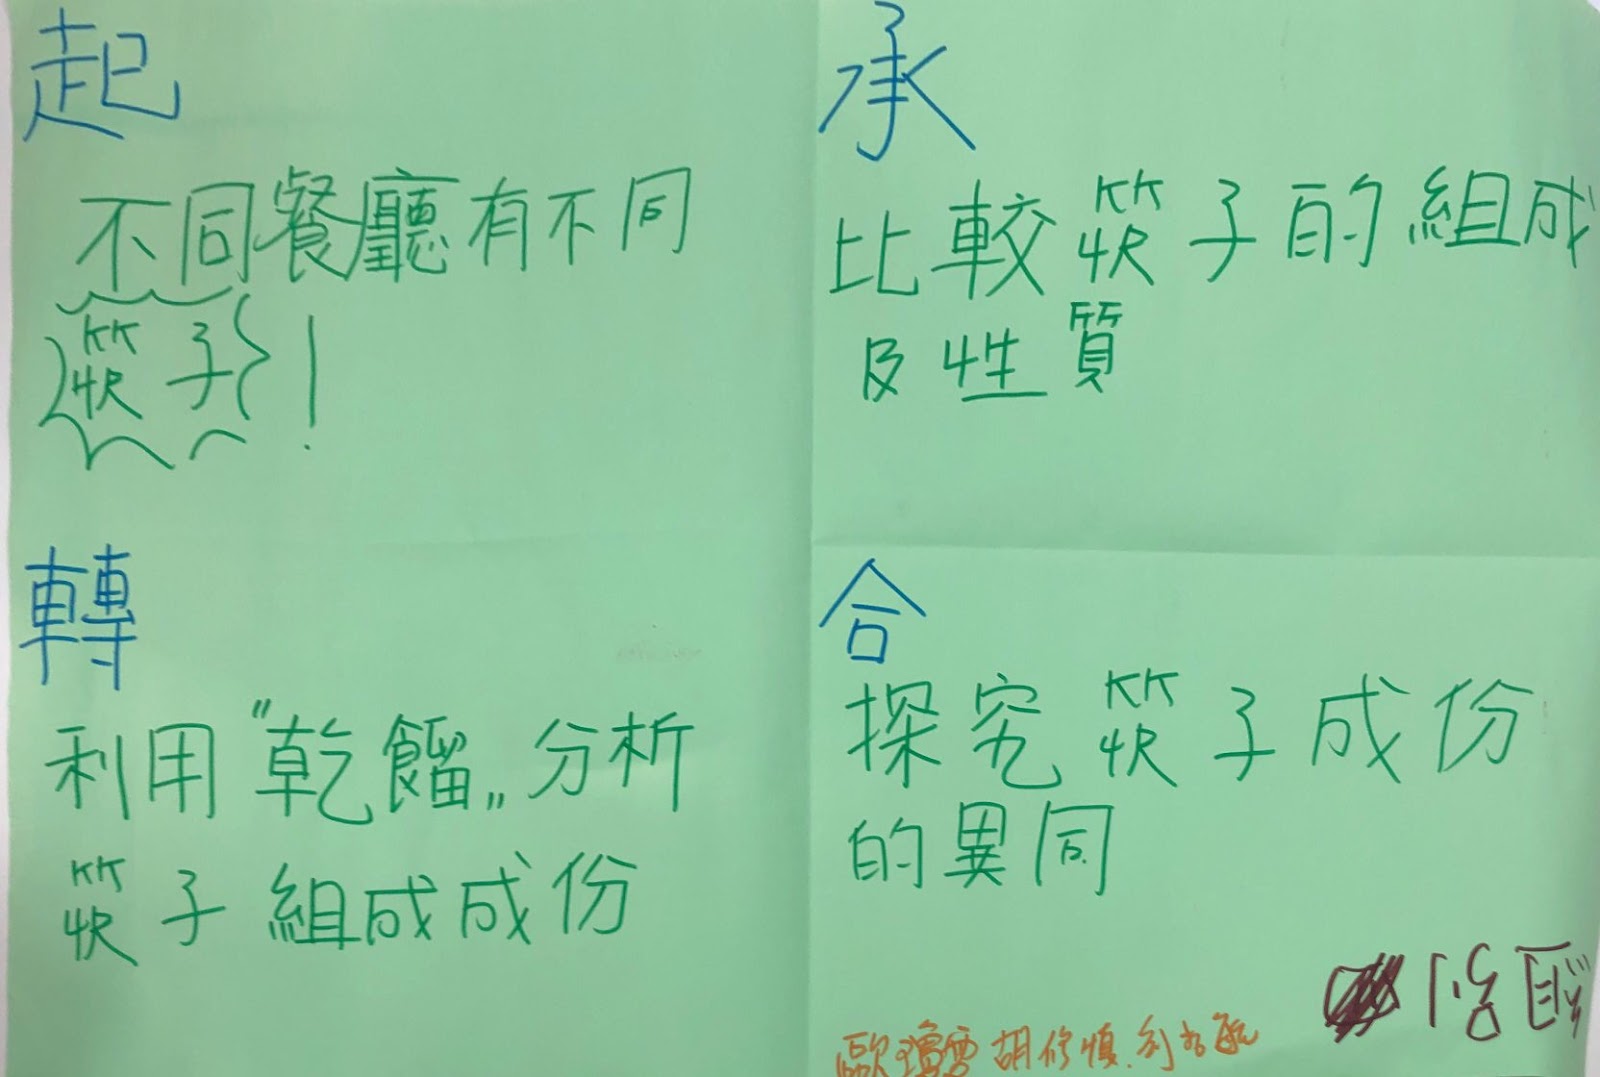 起
不同餐廳有不同
筷子!
承
比較筷子的組成
及性質
轉
利用"乾餾"分析
筷子組成成份
合
探究筷子成份
的異同
歐瓊雲 胡修慎